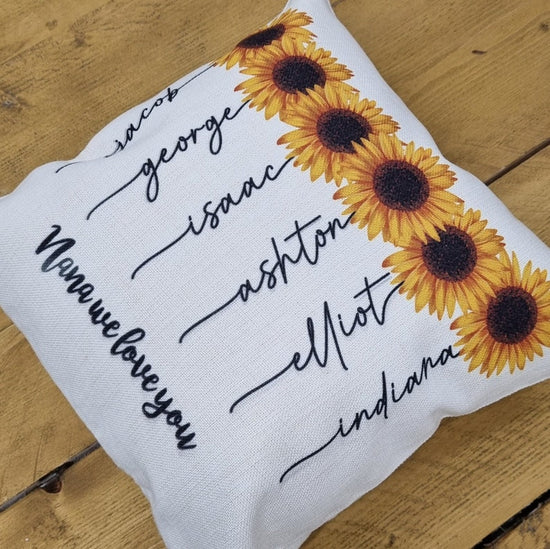 jacob
george
isaac
ashton
elliot
indiana
Nana we love you